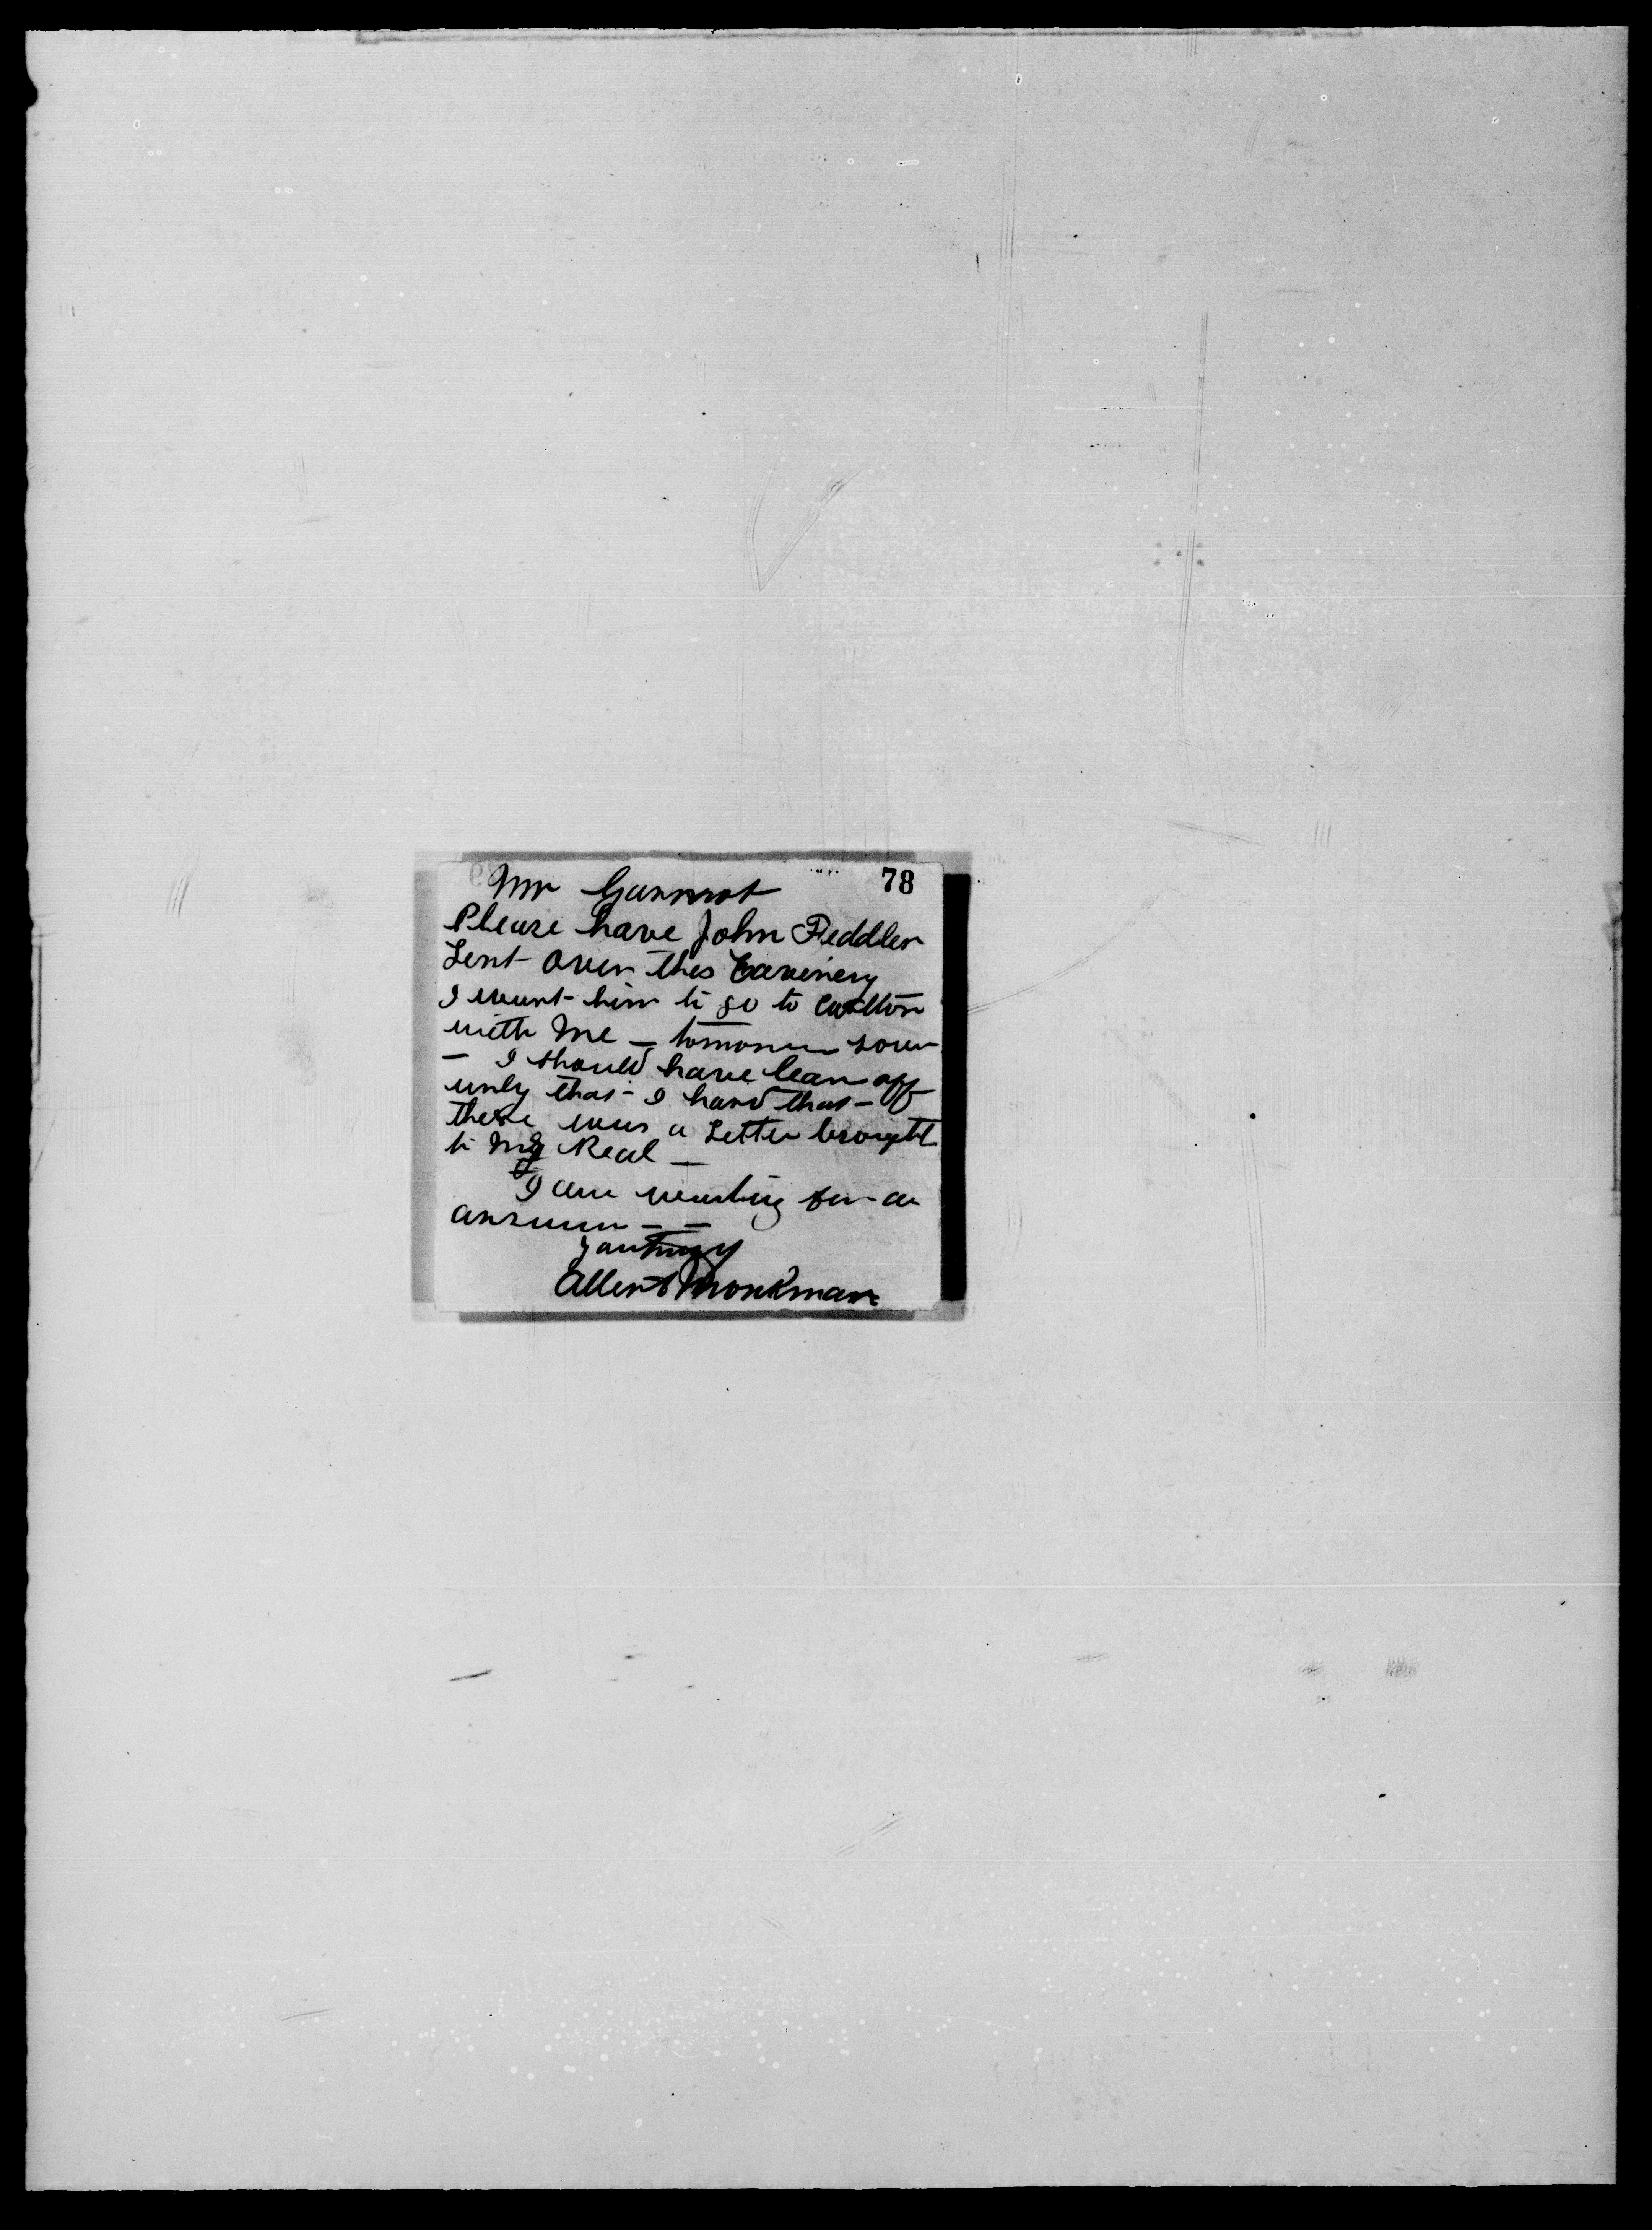 78
Mr Garnnot
Please have John Fieddler
Sent over this Eavineny
I want him to go to Carlton
with Me — tomorrow soun
— I should have bean off
unly that - I hard that -
there was a Letter brought
to Mr Real —
I am waiting for an
answer — —
yours truly
Albert Monkman